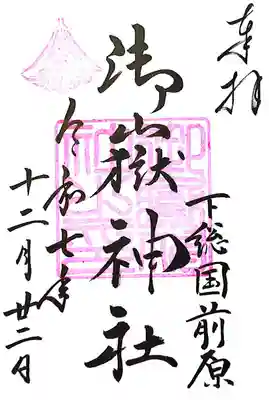 奉拝
下総国前原
御嶽神社
令和七年
十二月廿二日